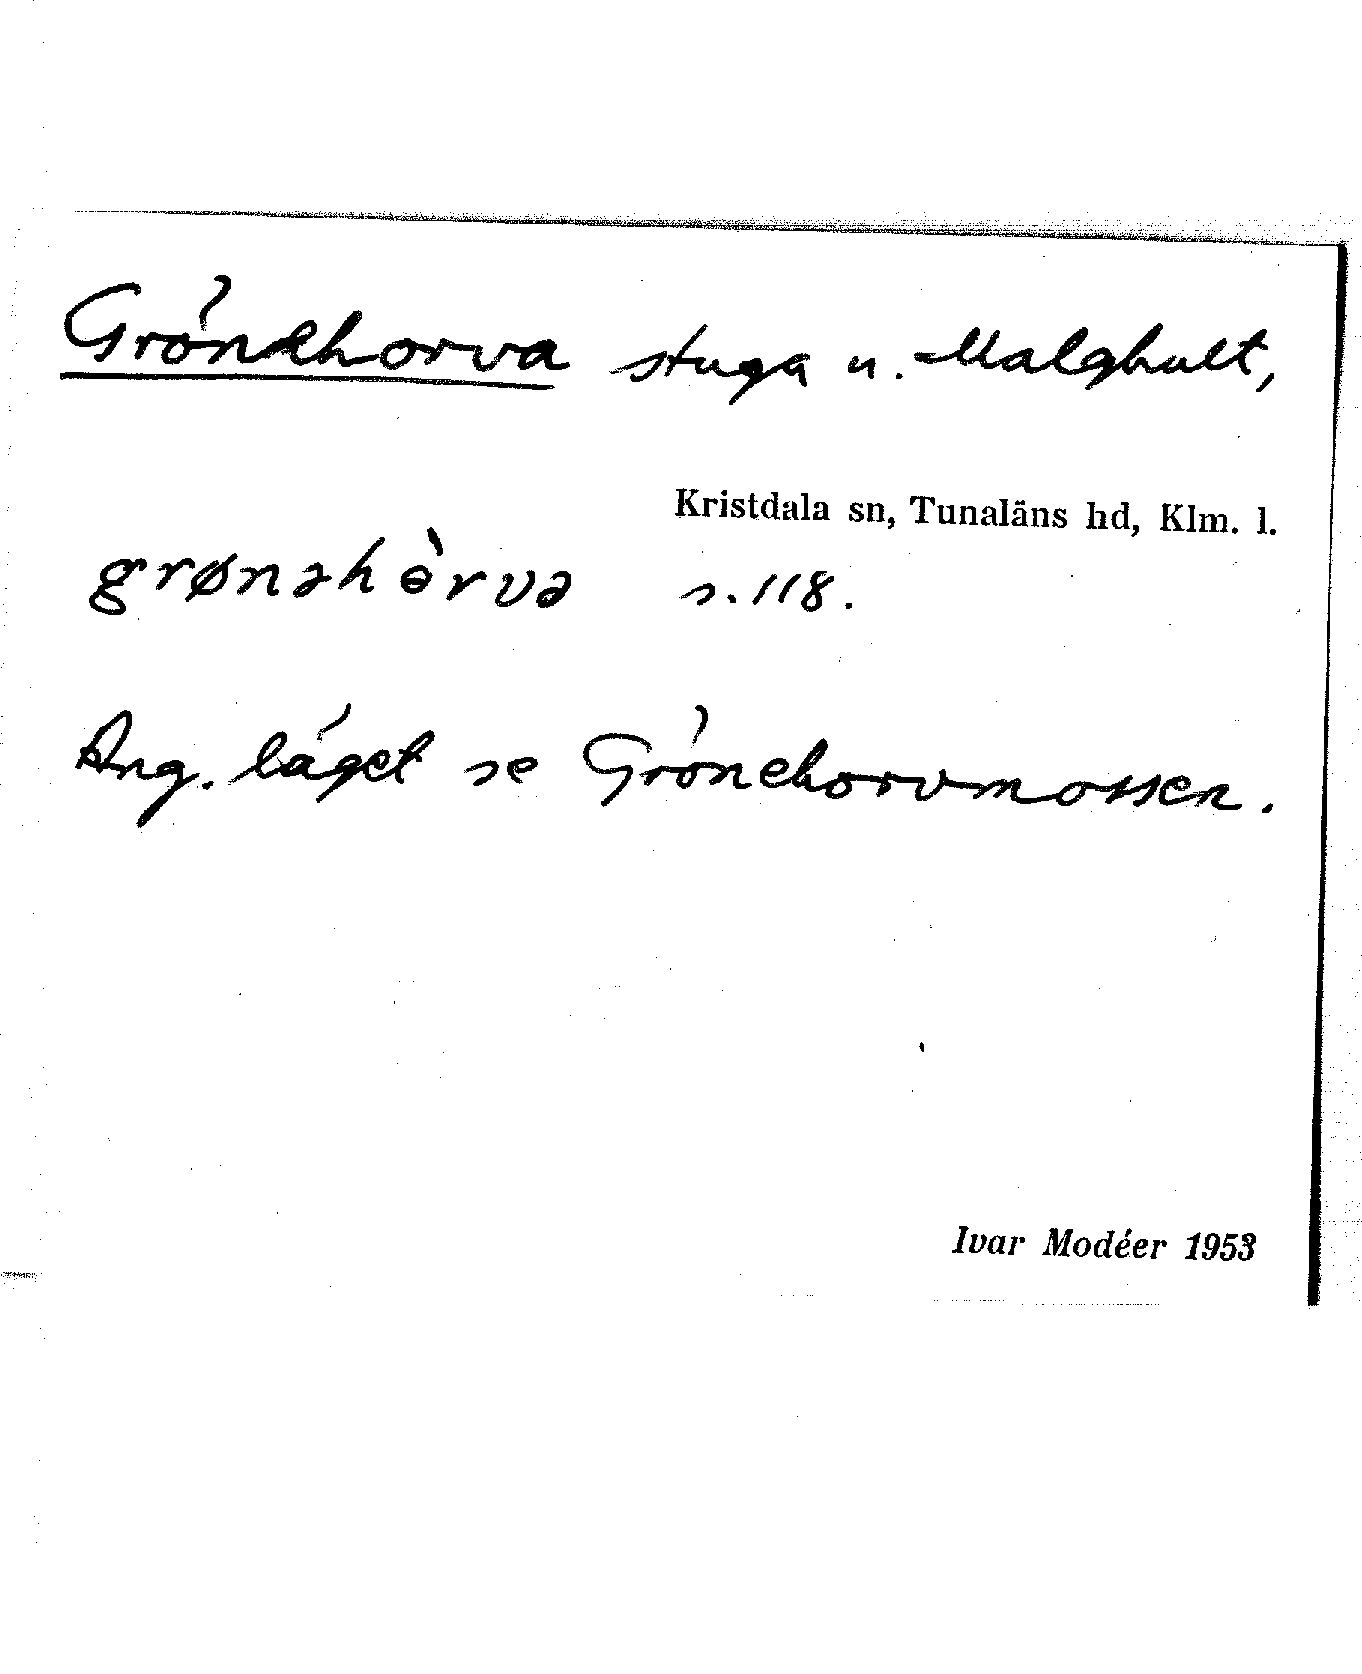 Grönehorva stuga u. Malghult,
Kristdala sn, Tunaläns hd, Klm. l.
grønəhɵ̀rvə s. 118.
Ang. läget se Grönehorvmossen.
Ivar Modéer 1953